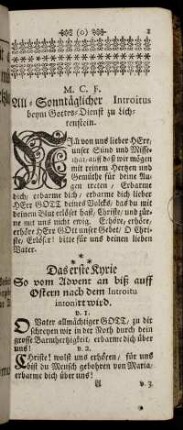 (o)
M. C. F.
All-Sonntäglicher Introitus
beym Gottes-Dienst zu Lich-
tenstein.
von uns lieber HErr,
unser Sünd und Misse-
that, auff daß wir mögen
mit reinem Hertzen und
Gemüthe für deine Au-
gen tretten / Erbarme
dich; erbarme dich / erbarme dich lieber
HErr GOTT deines Volcks, das du mit
deinem Blut erlöset hast, Christe, und zür-
ne mit uns nicht ewig. Erhöre, erhöre,
erhöre HErr GOtt unser Gebet/ O Chri-
ste, Erlöser! bitte für uns deinen lieben
Vater.
Das erste Kyrie
So vom Advent an biß auff
Ostern nach dem Introitu
intonirt wird.
v. 1.
O Vater allmächtiger GOTT, zu dir
schreyen wir in der Noth durch dein
grosse Barmhertzigkeit, erbarme dich über
uns!
v. 2.
Christe! wolst uns erhören / für uns
bist du Mensch gebohren von Maria,
erbarme dich über uns!
v. 3.